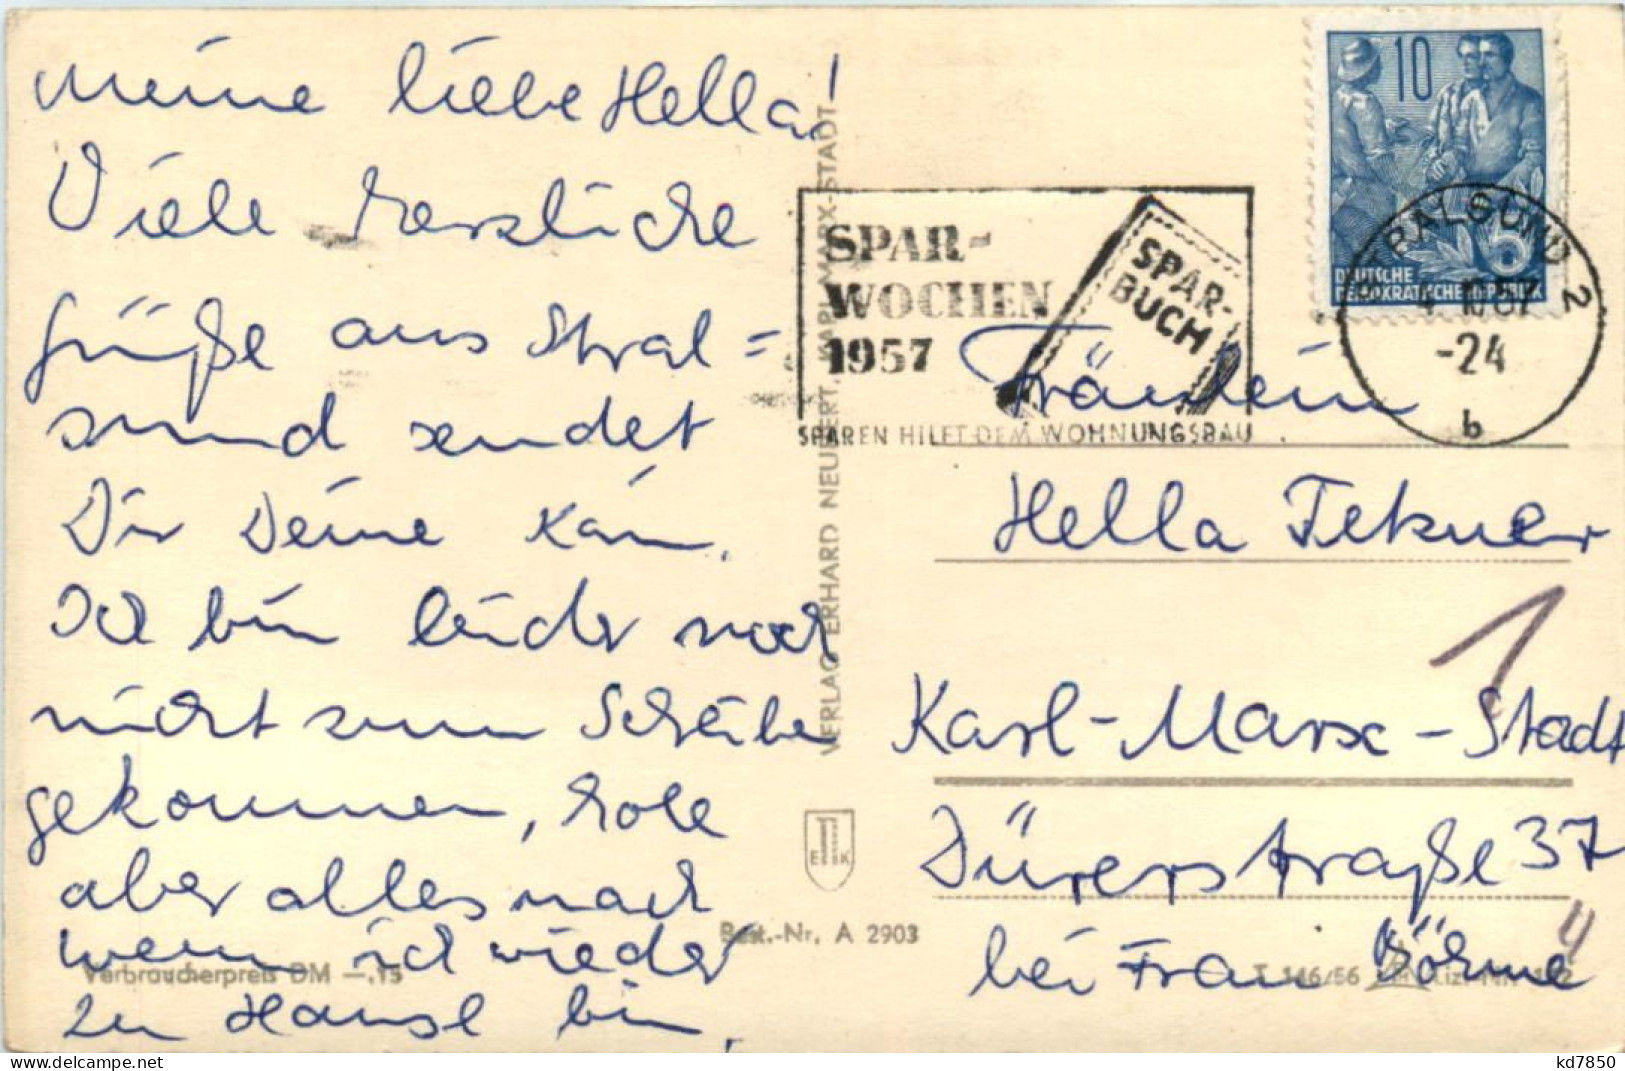 Meine liebe Hella!
Viele herzliche
Grüße aus Stral=
sund sendet
Dir Deine Kari.
Ich bin leider noch
nicht zum Schreiben
gekommen, hole
aber alles nach
wenn ich wieder
zu Hause bin.
Verbraucherpreis DM —.15
VERLAG ERHARD NEUBERT, KARL-MARX-STADT
E K
Best.-Nr. A 2903
SPAR-
WOCHEN
1957
SPAR-
BUCH
SPAREN HILFT DEM WOHNUNGSBAU
10
DEUTSCHE
DEMOKRATISCHE REPUBLIK
STRALSUND 2
4.10.57
-24
b
Fräulein
Hella
1
Karl-Marx-Stadt
Dürerstraße 37
bei Frau Böhme
4
T 146/56
kd7850